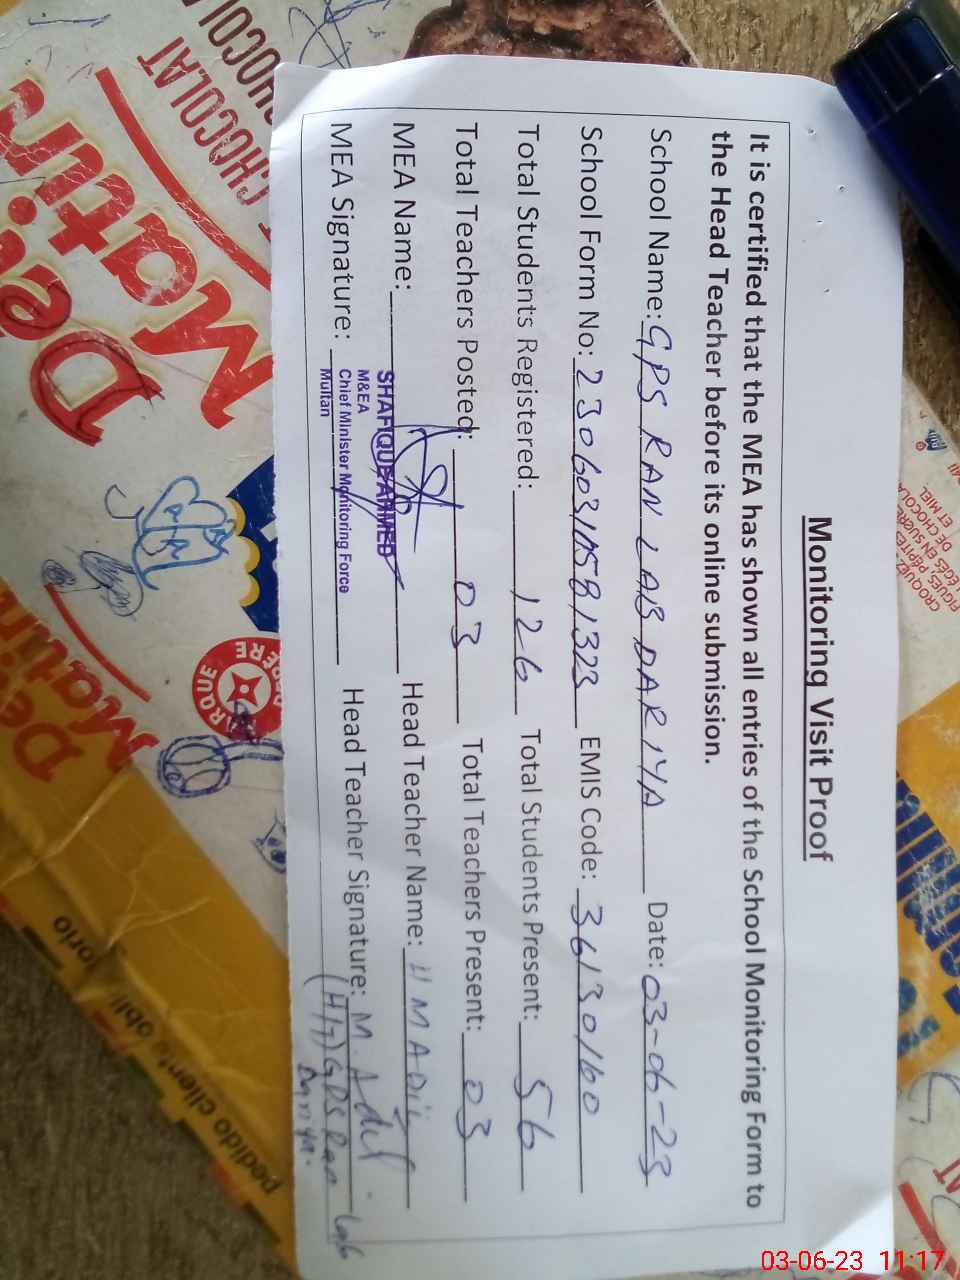 Monitoring Visit Proof
It is certified that the MEA has shown all entries of the School Monitoring Form to
the Head Teacher before its online submission.
School Name: GPS RAN LAB DARIYA Date: 03-06-23
School Form No: 23060311581323 EMIS Code: 36130160
Total Students Registered: 126 Total Students Present: 56
Total Teachers Posted: 03 Total Teachers Present: 03
MEA Name: Head Teacher Name: M ADIL
SHAFIQUE AHMED
M&EA
MEA Signature: Head Teacher Signature: M. Adil
Chief Minister Monitoring Force
Multan
(H/T) GPS Ran Lab
Dariya.
CHOCOLAT
CHOCOLA
Matin
Matin
pedido cliente obli
03-06-23 11:17